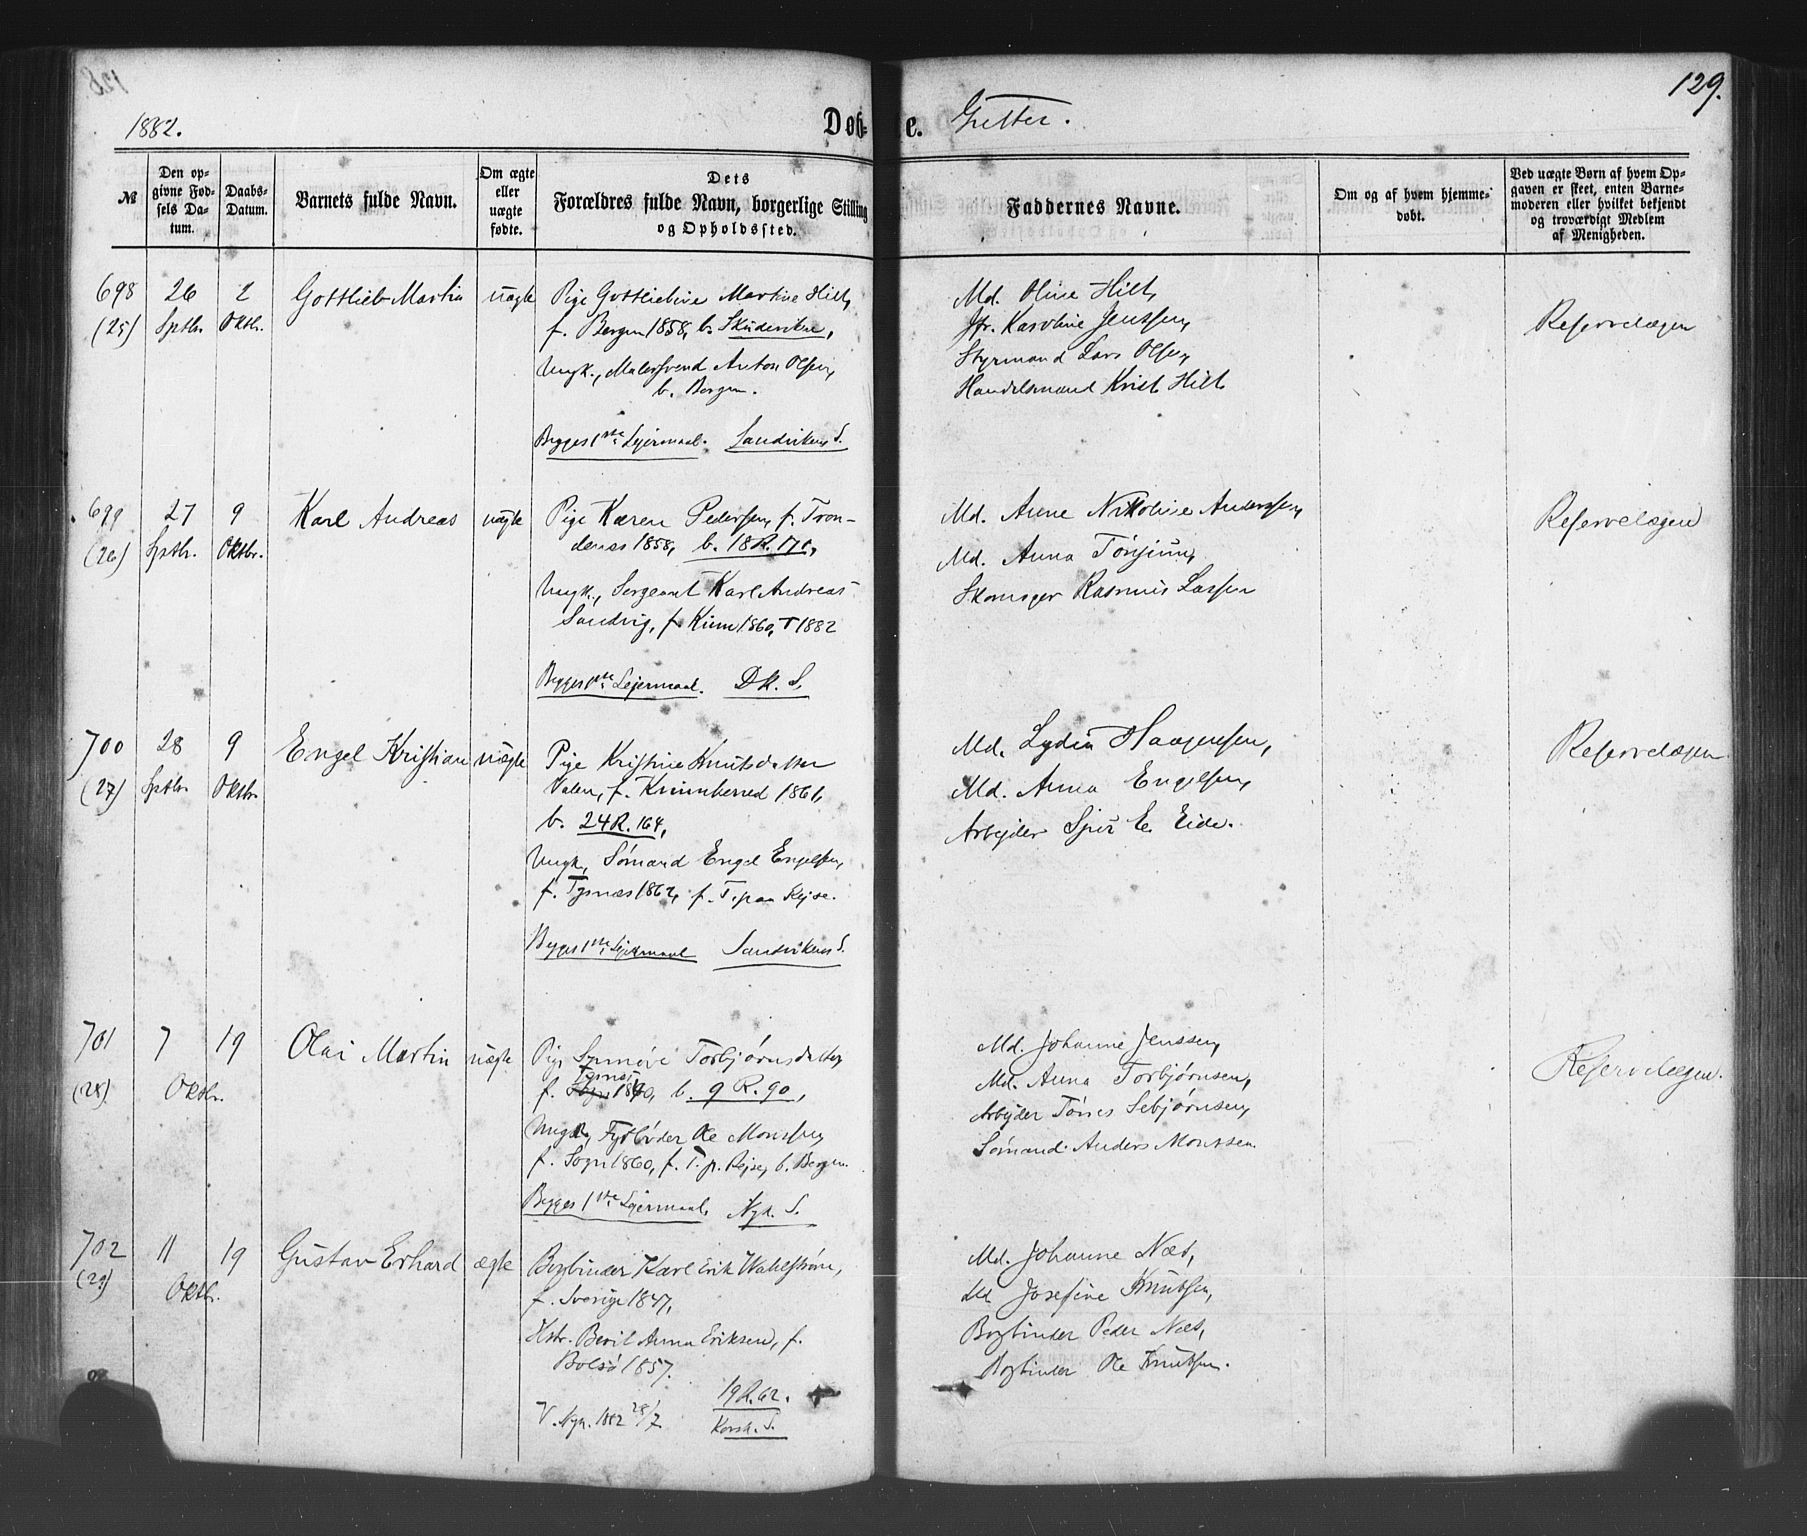 129.
1882.
Døb-e. Gutter.
№
Den opgivne Fødsels Datum.
Daabs-Datum.
Barnets fulde Navn.
Om ægte eller uægte fødte.
Dets Forældres fulde Navn, borgerlige Stilling og Opholdssted.
Faddernes Navne.
Om og af hvem hjemmedøbt.
Ved uægte Børn af hvem Opgaven er skeet, enten Barnemoderen eller hvilket bekjendt og troværdigt Medlem af Menigheden.
698 26 2 Gottlieb Martin uægte Pige Gottliebine Martine Hilt,
(25) Sptbr. Oktbr. f. Bergen 1858, b. Skudeviken,
Ungk., Malersvend Anton Olsen,
b. Bergen.
Bygges 1ste Lejermaal. Sandvikens S.
Md. Oline Hilt,
Jfr. Karoline Jenssen,
Styrmand Lars Olsen,
Handelsmand Krist. Hilt
Reservelægen
699 27 9 Karl Andreas uægte Pige Karen Pederssen, f. Tron-
(26) Sptbr. Oktbr. denæs 1858, b. 18 R. 171,
Ungk., Sergeant Karl Andreas
Sandvig, f. Kinn 1860, † 1882
Begges 1ste Lejermaal. DK. S.
Md. Anne Nikoline Anderssen,
Md. Anna Tönjum,
Skomager Rasmus Larssen
Reservelægen
700 28 9 Engel Kristian uægte Pige Kristine Knutsdatter
(27) Sptbr. Oktbr. Valen, f. Kvinnherred 1861,
b. 24 R. 164,
Ungk. Sømand Engel Engelsen,
f. Tysnæs 1862, f. T. paa Rejse.
Begges 1ste Lejermaal Sandvikens S.
Md. Lydia Haagensen,
Md. Anna Engelsen,
Arbejder Sjur E. Eide.
Reservelægen
701 7 19 Olai Martin uægte Pige Synnöve Torbjørnsdatter,
(28). Oktbr. f. Tysnæs 1860, b. 9 R. 90,
Ungk., Fyrbøder Ole Monssen,
f. Sogn 1860, f. T. p. Rejse, b. Bergen.
Begges 1ste Lejermaal. Nyk. S.
Md. Johanne Jenssen,
Md. Anna Torbjørnsen,
Arbejder Tönnes Sebjørnsen,
Sømand Anders Monssen.
Reservelægen.
702 11 19 Gustav Erhard ægte Bogbinder Karl Erik Wahlstrøm,
(29) Oktbr. f. Sverige 1847,
Hstr. Beril Anna Eriksen, f.
Bolsö 1857.
V. Nyk. 1882 28/7 19 R. 62.
Korsk. S.
Md. Johanne Næs,
Md Josefine Knutsen,
Bogbinder Peder Næs,
Bogbinder Ole Knutsen.